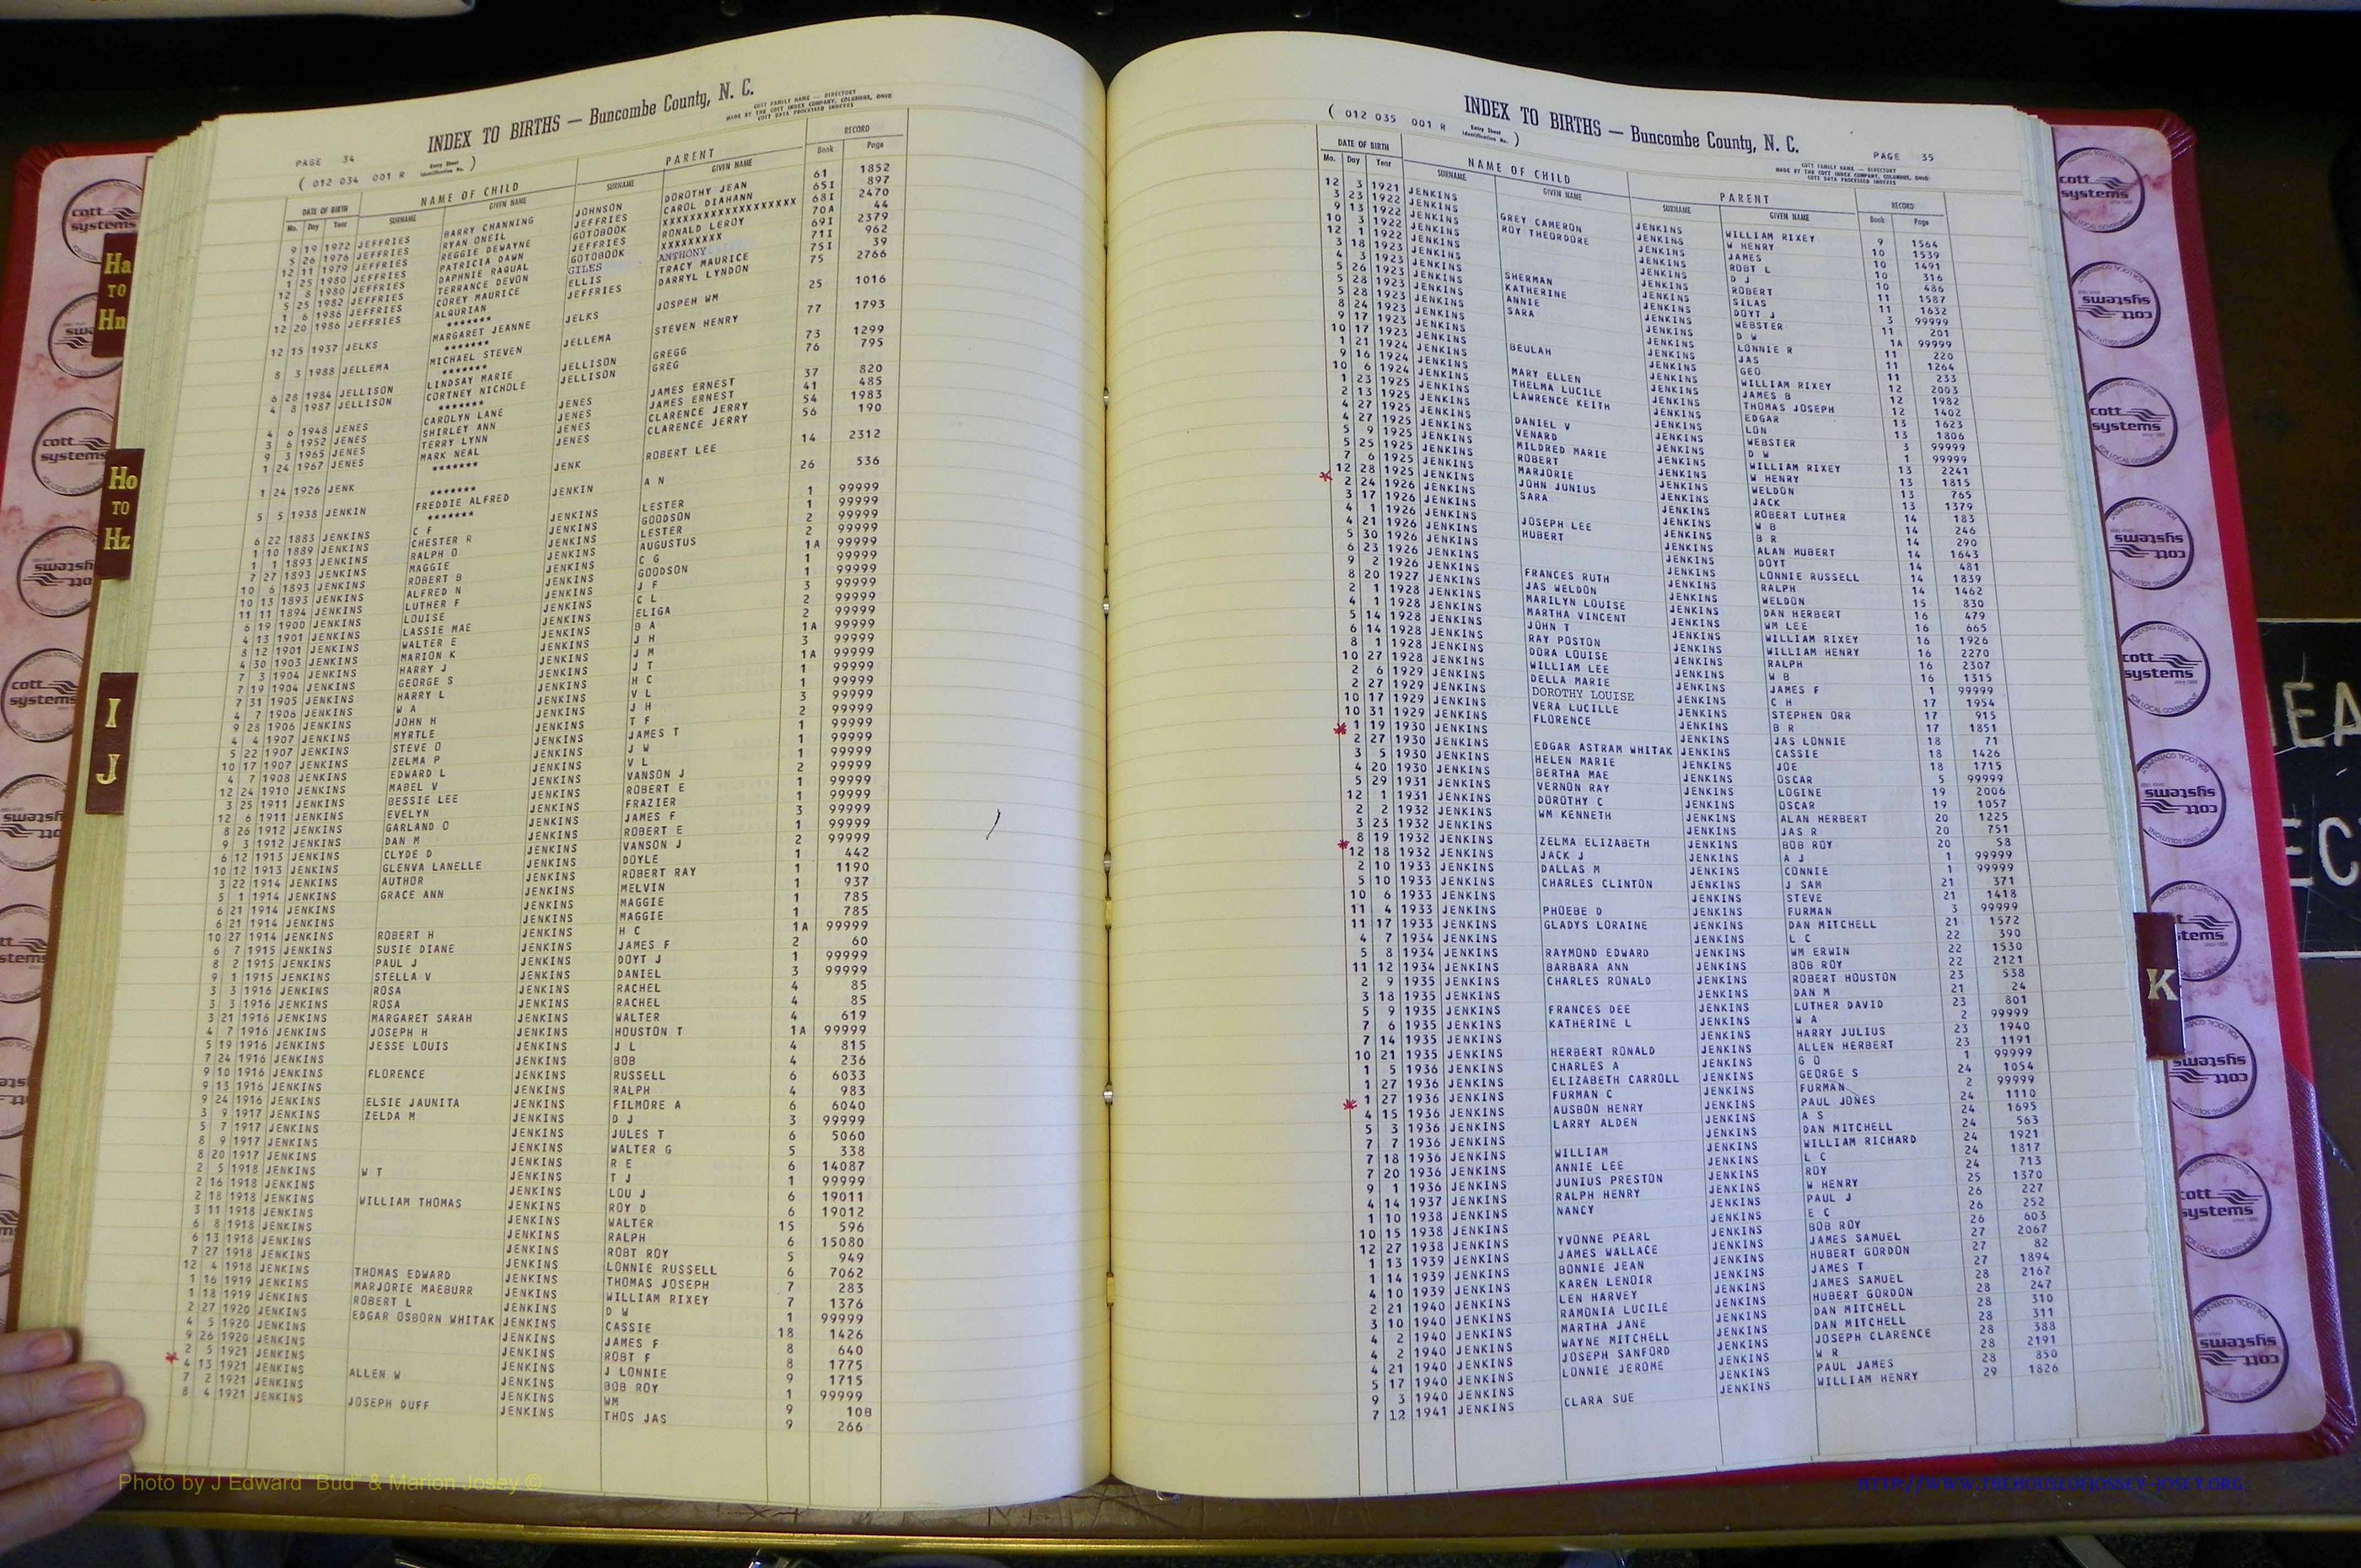 INDEX TO BIRTHS — Buncombe County, N. C.
COTT FAMILY NAME — DIRECTORY
MADE BY THE COTT INDEX COMPANY, COLUMBUS, OHIO
COTT DATA PROCESSED INDEXES
PAGE 34
( 012 034 001 R Entry Sheet Identification No. )
DATE OF BIRTH NAME OF CHILD PARENT RECORD
Mo. Day Year SURNAME GIVEN NAME SURNAME GIVEN NAME Book Page
9 19 1972 JEFFRIES BARRY CHANNING JOHNSON DOROTHY JEAN 61 1852
5 26 1976 JEFFRIES RYAN ONEIL JEFFRIES CAROL DIAHANN 65I 897
12 11 1979 JEFFRIES REGGIE DEWAYNE GOTOBOOK XXXXXXXXXXXXXXXXXXX 68I 2470
1 25 1980 JEFFRIES PATRICIA DAWN JEFFRIES RONALD LEROY 70A 44
12 8 1980 JEFFRIES DAPHNIE RAQUAL GOTOBOOK XXXXXXXXX 69I 2379
5 25 1982 JEFFRIES TERRANCE DEVON GILES ANTHONY 71I 962
1 6 1986 JEFFRIES COREY MAURICE ELLIS TRACY MAURICE 75I 39
12 20 1986 JEFFRIES ALQURIAN JEFFRIES DARRYL LYNDON 75 2766
*******
12 15 1937 JELKS MARGARET JEANNE JELKS JOSPEH WM 25 1016
*******
8 3 1988 JELLEMA MICHAEL STEVEN JELLEMA STEVEN HENRY 77 1793
*******
6 28 1984 JELLISON LINDSAY MARIE JELLISON GREGG 73 1299
4 8 1987 JELLISON CORTNEY NICHOLE JELLISON GREG 76 795
*******
4 6 1948 JENES CAROLYN LANE JENES JAMES ERNEST 37 820
3 6 1952 JENES SHIRLEY ANN JENES JAMES ERNEST 41 485
9 3 1965 JENES TERRY LYNN JENES CLARENCE JERRY 54 1983
1 24 1967 JENES MARK NEAL JENES CLARENCE JERRY 56 190
*******
1 24 1926 JENK JENK ROBERT LEE 14 2312
*******
5 5 1938 JENKIN FREDDIE ALFRED JENKIN A N 26 536
*******
6 22 1883 JENKINS C F JENKINS LESTER 1 99999
1 10 1889 JENKINS CHESTER R JENKINS GOODSON 1 99999
1 1 1893 JENKINS RALPH O JENKINS LESTER 2 99999
7 27 1893 JENKINS MAGGIE JENKINS AUGUSTUS 2 99999
10 6 1893 JENKINS ROBERT B JENKINS C G 1A 99999
10 13 1893 JENKINS ALFRED N JENKINS GOODSON 1 99999
11 11 1894 JENKINS LUTHER F JENKINS J F 1 99999
6 19 1900 JENKINS LOUISE JENKINS C L 3 99999
4 13 1901 JENKINS LASSIE MAE JENKINS ELIGA 2 99999
8 12 1901 JENKINS WALTER E JENKINS B A 2 99999
4 30 1903 JENKINS MARION K JENKINS J H 1A 99999
7 3 1904 JENKINS HARRY J JENKINS J M 3 99999
7 19 1904 JENKINS GEORGE S JENKINS J T 1A 99999
7 31 1905 JENKINS HARRY L JENKINS H C 1 99999
4 7 1906 JENKINS W A JENKINS V L 1 99999
9 28 1906 JENKINS JOHN H JENKINS J H 3 99999
4 4 1907 JENKINS MYRTLE JENKINS T F 2 99999
5 22 1907 JENKINS STEVE O JENKINS JAMES T 1 99999
10 17 1907 JENKINS ZELMA P JENKINS J W 1 99999
4 7 1908 JENKINS EDWARD L JENKINS V L 1 99999
12 24 1910 JENKINS MABEL V JENKINS VANSON J 2 99999
3 25 1911 JENKINS BESSIE LEE JENKINS ROBERT E 1 99999
12 6 1911 JENKINS EVELYN JENKINS FRAZIER 1 99999
8 26 1912 JENKINS GARLAND O JENKINS JAMES F 3 99999
9 3 1912 JENKINS DAN M JENKINS ROBERT E 1 99999
6 12 1913 JENKINS CLYDE D JENKINS VANSON J 2 99999
10 12 1913 JENKINS GLENVA LANELLE JENKINS DOYLE 1 442
3 22 1914 JENKINS AUTHOR JENKINS ROBERT RAY 1 1190
5 1 1914 JENKINS GRACE ANN JENKINS MELVIN 1 937
6 21 1914 JENKINS JENKINS MAGGIE 1 785
6 21 1914 JENKINS JENKINS MAGGIE 1 785
10 27 1914 JENKINS ROBERT H JENKINS H C 1A 99999
6 7 1915 JENKINS SUSIE DIANE JENKINS JAMES F 2 60
8 2 1915 JENKINS PAUL J JENKINS DOYT J 1 99999
9 1 1915 JENKINS STELLA V JENKINS DANIEL 3 99999
3 3 1916 JENKINS ROSA JENKINS RACHEL 4 85
3 3 1916 JENKINS ROSA JENKINS RACHEL 4 85
3 21 1916 JENKINS MARGARET SARAH JENKINS WALTER 4 619
4 7 1916 JENKINS JOSEPH H JENKINS HOUSTON T 1A 99999
5 19 1916 JENKINS JESSE LOUIS JENKINS J L 4 815
7 24 1916 JENKINS JENKINS BOB 4 236
9 10 1916 JENKINS FLORENCE JENKINS RUSSELL 6 6033
9 13 1916 JENKINS JENKINS RALPH 4 983
9 24 1916 JENKINS ELSIE JAUNITA JENKINS FILMORE A 6 6040
3 9 1917 JENKINS ZELDA M JENKINS D J 3 99999
5 7 1917 JENKINS JENKINS JULES T 6 5060
8 9 1917 JENKINS JENKINS WALTER G 5 338
8 20 1917 JENKINS JENKINS R E 6 14087
2 5 1918 JENKINS W T JENKINS T J 1 99999
2 16 1918 JENKINS JENKINS LOU J 6 19011
2 18 1918 JENKINS WILLIAM THOMAS JENKINS ROY D 6 19012
3 11 1918 JENKINS JENKINS WALTER 15 596
6 8 1918 JENKINS JENKINS RALPH 6 15080
6 13 1918 JENKINS JENKINS ROBT ROY 5 949
7 27 1918 JENKINS JENKINS LONNIE RUSSELL 6 7062
12 4 1918 JENKINS THOMAS EDWARD JENKINS THOMAS JOSEPH 7 283
1 16 1919 JENKINS MARJORIE MAEBURR JENKINS WILLIAM RIXEY 7 1376
1 18 1919 JENKINS ROBERT L JENKINS D W 1 99999
2 27 1920 JENKINS EDGAR OSBORN WHITAK JENKINS CASSIE 18 1426
4 5 1920 JENKINS JENKINS JAMES F 8 640
9 26 1920 JENKINS JENKINS ROBT F 8 1775
2 5 1921 JENKINS JENKINS J LONNIE 9 1715
4 13 1921 JENKINS ALLEN W JENKINS BOB ROY 1 99999
7 2 1921 JENKINS JENKINS WM 9 108
8 4 1921 JENKINS JOSEPH DUFF JENKINS THOS JAS 9 266
INDEX TO BIRTHS — Buncombe County, N. C.
( 012 035 001 R Entry Sheet Identification No. )
PAGE 35
COTT FAMILY NAME — DIRECTORY
MADE BY THE COTT INDEX COMPANY, COLUMBUS, OHIO
COTT DATA PROCESSED INDEXES
DATE OF BIRTH NAME OF CHILD PARENT RECORD
Mo. Day Year SURNAME GIVEN NAME SURNAME GIVEN NAME Book Page
12 3 1921 JENKINS
3 23 1922 JENKINS
9 13 1922 JENKINS
10 3 1922 JENKINS
12 1 1922 JENKINS
3 18 1923 JENKINS
4 3 1923 JENKINS
5 26 1923 JENKINS
5 28 1923 JENKINS
5 28 1923 JENKINS
8 24 1923 JENKINS
9 17 1923 JENKINS
10 17 1923 JENKINS
1 21 1924 JENKINS
9 16 1924 JENKINS
10 6 1924 JENKINS
1 23 1925 JENKINS
2 13 1925 JENKINS
4 27 1925 JENKINS
4 27 1925 JENKINS
5 9 1925 JENKINS
5 25 1925 JENKINS
7 6 1925 JENKINS
12 28 1925 JENKINS
2 24 1926 JENKINS
3 17 1926 JENKINS
4 1 1926 JENKINS
4 21 1926 JENKINS
5 30 1926 JENKINS
6 23 1926 JENKINS
9 2 1926 JENKINS
8 20 1927 JENKINS
2 1 1928 JENKINS
4 1 1928 JENKINS
5 14 1928 JENKINS
6 14 1928 JENKINS
8 1 1928 JENKINS
10 27 1928 JENKINS
2 6 1929 JENKINS
2 27 1929 JENKINS
10 17 1929 JENKINS
10 31 1929 JENKINS
1 19 1930 JENKINS
2 27 1930 JENKINS
3 5 1930 JENKINS
4 20 1930 JENKINS
5 29 1931 JENKINS
12 1 1931 JENKINS
2 2 1932 JENKINS
3 23 1932 JENKINS
8 19 1932 JENKINS
12 18 1932 JENKINS
2 10 1933 JENKINS
5 10 1933 JENKINS
10 6 1933 JENKINS
11 4 1933 JENKINS
11 17 1933 JENKINS
4 7 1934 JENKINS
5 8 1934 JENKINS
11 12 1934 JENKINS
2 9 1935 JENKINS
3 18 1935 JENKINS
5 9 1935 JENKINS
7 6 1935 JENKINS
7 14 1935 JENKINS
10 21 1935 JENKINS
1 5 1936 JENKINS
1 27 1936 JENKINS
1 27 1936 JENKINS
4 15 1936 JENKINS
5 3 1936 JENKINS
7 7 1936 JENKINS
7 18 1936 JENKINS
7 20 1936 JENKINS
9 1 1936 JENKINS
4 14 1937 JENKINS
1 10 1938 JENKINS
10 15 1938 JENKINS
12 27 1938 JENKINS
1 13 1939 JENKINS
1 14 1939 JENKINS
4 10 1939 JENKINS
2 21 1940 JENKINS
3 10 1940 JENKINS
4 2 1940 JENKINS
4 2 1940 JENKINS
4 21 1940 JENKINS
5 17 1940 JENKINS
9 3 1940 JENKINS
7 12 1941 JENKINS
GREY CAMERON
ROY THEORDORE
SHERMAN
KATHERINE
ANNIE
SARA
BEULAH
MARY ELLEN
THELMA LUCILE
LAWRENCE KEITH
DANIEL V
VENARD
MILDRED MARIE
ROBERT
MARJORIE
JOHN JUNIUS
SARA
JOSEPH LEE
HUBERT
FRANCES RUTH
JAS WELDON
MARILYN LOUISE
MARTHA VINCENT
JOHN T
RAY POSTON
DORA LOUISE
WILLIAM LEE
DELLA MARIE
DOROTHY LOUISE
VERA LUCILLE
FLORENCE
EDGAR ASTRAM WHITAK
HELEN MARIE
BERTHA MAE
VERNON RAY
DOROTHY C
WM KENNETH
ZELMA ELIZABETH
JACK J
DALLAS M
CHARLES CLINTON
PHOEBE D
GLADYS LORAINE
RAYMOND EDWARD
BARBARA ANN
CHARLES RONALD
FRANCES DEE
KATHERINE L
HERBERT RONALD
CHARLES A
ELIZABETH CARROLL
FURMAN C
AUSBON HENRY
LARRY ALDEN
WILLIAM
ANNIE LEE
JUNIUS PRESTON
RALPH HENRY
NANCY
YVONNE PEARL
JAMES WALLACE
BONNIE JEAN
KAREN LENOIR
LEN HARVEY
RAMONIA LUCILE
MARTHA JANE
WAYNE MITCHELL
JOSEPH SANFORD
LONNIE JEROME
CLARA SUE
JENKINS WILLIAM RIXEY 9 1564
JENKINS W HENRY 10 1539
JENKINS JAMES 10 1491
JENKINS ROBT L 10 316
JENKINS D J 10 486
JENKINS ROBERT 11 1587
JENKINS SILAS 11 1632
JENKINS DOYT J 3 99999
JENKINS WEBSTER 11 201
JENKINS D W 1A 99999
JENKINS LONNIE R 11 220
JENKINS JAS 11 1264
JENKINS GEO 11 233
JENKINS WILLIAM RIXEY 12 2003
JENKINS JAMES B 12 1982
JENKINS THOMAS JOSEPH 12 1402
JENKINS EDGAR 13 1623
JENKINS LON 13 1806
JENKINS WEBSTER 3 99999
JENKINS D W 1 99999
JENKINS WILLIAM RIXEY 13 2241
JENKINS W HENRY 13 1815
JENKINS WELDON 13 765
JENKINS JACK 13 1379
JENKINS ROBERT LUTHER 14 183
JENKINS W B 14 246
JENKINS B R 14 290
JENKINS ALAN HUBERT 14 1643
JENKINS DOYT 14 481
JENKINS LONNIE RUSSELL 14 1839
JENKINS RALPH 14 1462
JENKINS WELDON 15 830
JENKINS DAN HERBERT 16 479
JENKINS WM LEE 16 665
JENKINS WILLIAM RIXEY 16 1926
JENKINS WILLIAM HENRY 16 2270
JENKINS RALPH 16 2307
JENKINS W B 16 1315
JENKINS JAMES F 1 99999
JENKINS C H 17 1954
JENKINS STEPHEN ORR 17 915
JENKINS B R 17 1851
JENKINS JAS LONNIE 18 71
JENKINS CASSIE 18 1426
JENKINS JOE 18 1715
JENKINS OSCAR 5 99999
JENKINS LOGINE 19 2006
JENKINS OSCAR 19 1057
JENKINS ALAN HERBERT 20 1225
JENKINS JAS R 20 751
JENKINS BOB ROY 20 58
JENKINS A J 1 99999
JENKINS CONNIE 1 99999
JENKINS J SAM 21 371
JENKINS STEVE 21 1418
JENKINS FURMAN 3 99999
JENKINS DAN MITCHELL 21 1572
JENKINS L C 22 390
JENKINS WM ERWIN 22 1530
JENKINS BOB ROY 22 2121
JENKINS ROBERT HOUSTON 23 538
JENKINS DAN M 21 24
JENKINS LUTHER DAVID 23 801
JENKINS W A 2 99999
JENKINS HARRY JULIUS 23 1940
JENKINS ALLEN HERBERT 23 1191
JENKINS G O 1 99999
JENKINS GEORGE S 24 1054
JENKINS FURMAN 2 99999
JENKINS PAUL JONES 24 1110
JENKINS A S 24 1695
JENKINS DAN MITCHELL 24 563
JENKINS WILLIAM RICHARD 24 1921
JENKINS L C 24 1817
JENKINS ROY 24 713
JENKINS W HENRY 25 1370
JENKINS PAUL J 26 227
JENKINS E C 26 252
JENKINS BOB ROY 26 603
JENKINS JAMES SAMUEL 27 2067
JENKINS HUBERT GORDON 27 82
JENKINS JAMES T 27 1894
JENKINS JAMES SAMUEL 28 2167
JENKINS HUBERT GORDON 28 247
JENKINS DAN MITCHELL 28 310
JENKINS DAN MITCHELL 28 311
JENKINS JOSEPH CLARENCE 28 388
JENKINS W R 28 2191
JENKINS PAUL JAMES 28 850
JENKINS WILLIAM HENRY 29 1826
Ha TO Hn
Ho TO Hz
I
J
K
cott systems
Photo by J Edward "Bud" & Marion Josey ©
HTTP://WWW.THEHOUSEOFJOSSEY-JOSEY.ORG